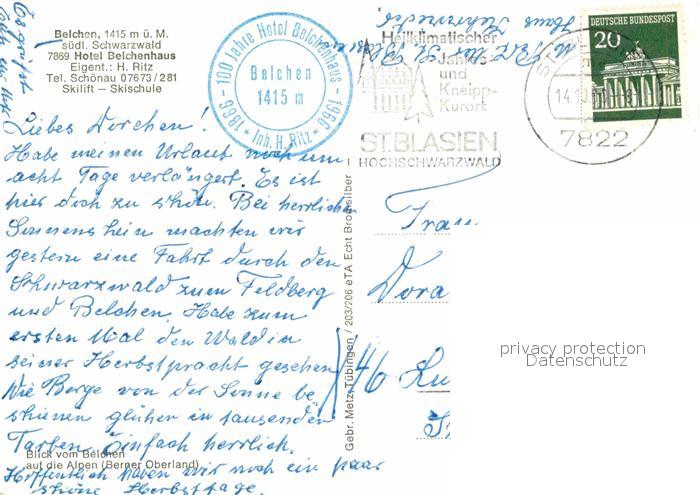 Belchen, 1415 m ü. M.
südl. Schwarzwald
7869 Hotel Belchenhaus
Eigent.: H. Ritz
Tel. Schönau 07673/281
Skilift – Skischule
1866 - 100 Jahre Hotel Belchenhaus - 1966
Belchen
1415 m
Inh. H. Ritz
Heilklimatischer
Jahres-
und
Kneipp-
Kurort
ST. BLASIEN
HOCHSCHWARZWALD
7822
DEUTSCHE BUNDESPOST
20
Liebes Dorchen!
Habe meinen Urlaub noch um
acht Tage verlängert. Es ist
hier doch zu schön. Bei herrlichen
Sonnenschein machten wir
gestern eine Fahrt durch den
Schwarzwald zum Feldberg
und Belchen. Habe zum
ersten Mal den Wald in
seiner Herbstpracht gesehen
Die Berge von der Sonne be
schienen glühen in tausenden
Farben. Einfach herrlich.
Hoffentlich haben wir noch ein paar
schöne Herbsttage.
Blick vom Belchen
auf die Alpen (Berner Oberland)
Gebr. Metz, Tübingen / 203/206 eTA Echt Bromsilber
Frau
Dora
46
privacy protection
Datenschutz